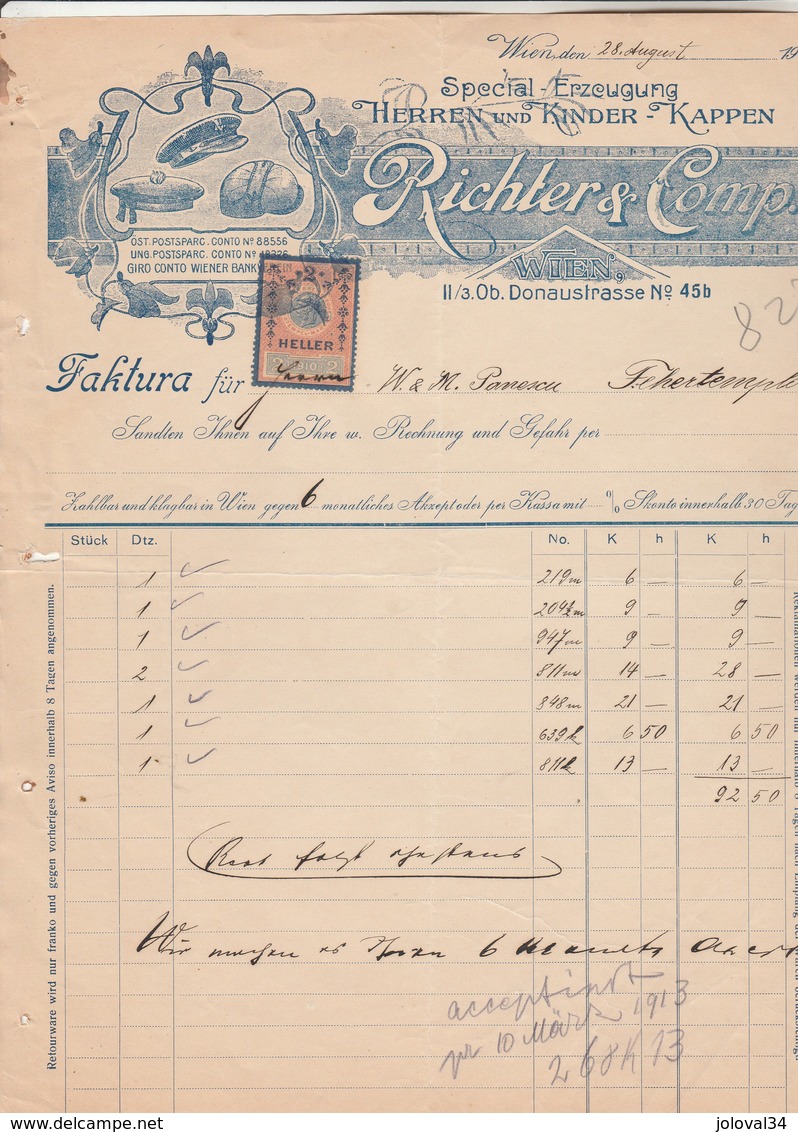 Wien, den 28. August 19
Special-Erzeugung
Herren und Kinder-Kappen
Richter & Comp.
Wien,
II/3. Ob. Donaustrasse No 45b
ÖST. POSTSPARC. CONTO No 88556
UNG. POSTSPARC. CONTO No
GIRO CONTO WIENER
2
HELLER
2 1910 2
Faktura für Herrn W. & M. Panescu Fehertempl
Sandten Ihnen auf Ihre w. Rechnung und Gefahr per
Zahlbar und klagbar in Wien gegen 6 monatliches Akzept oder per Kassa mit % Skonto innerhalb 30 Tag
Stück Dtz. No. K h K h
1 219m 6 — 6 —
1 204½m 9 — 9 —
1 947m 9 — 9 —
2 811m 14 — 28 —
1 848m 21 — 21 —
1 639k 6 50 6 50
1 811k 13 — 13 —
92 50
Rest folgt ehestens
Wir machen es Ihnen 6 Monats
acceptirt
pr 10 März 1913
268K13
Retourware wird nur franko und gegen vorheriges Aviso innerhalb 8 Tagen angenommen.
delcampe.net
joloval34